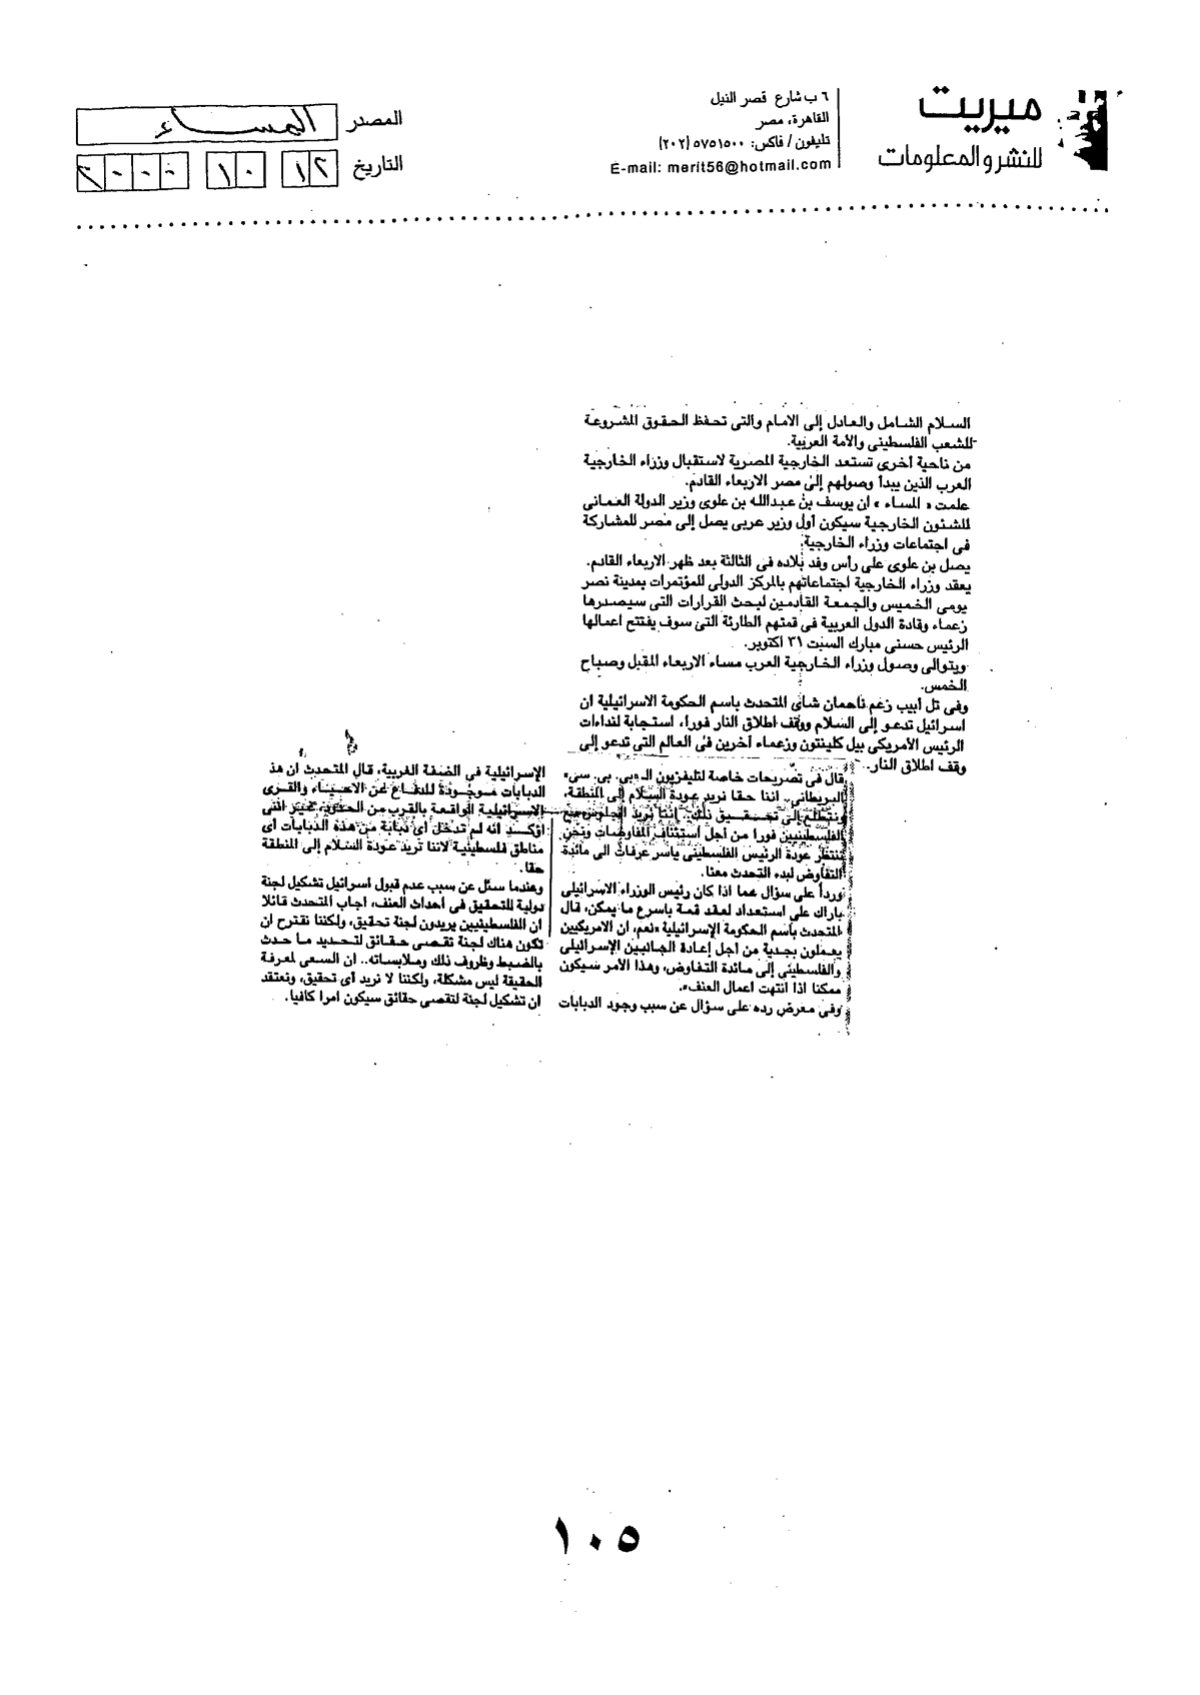 ميريت
للنشر والمعلومات
٦ ب شارع قصر النيل
القاهرة، مصر
تليفون / فاكس: ٥٧٥١٥٠٠ (٢٠٢)
E-mail: merit56@hotmail.com
المصدر المساء
التاريخ ١٢ ١٠ ٢٠٠٠
السلام الشامل والعادل إلى الامام والتى تحفظ الحقوق المشروعة
للشعب الفلسطينى والأمة العربية.
من ناحية أخرى تستعد الخارجية المصرية لاستقبال وزراء الخارجية
العرب الذين يبدأ وصولهم إلى مصر الاربعاء القادم.
علمت « المساء » ان يوسف بن عبدالله بن علوى وزير الدولة العمانى
للشئون الخارجية سيكون أول وزير عربى يصل إلى مصر للمشاركة
فى اجتماعات وزراء الخارجية.
يصل بن علوى على رأس وفد بلاده فى الثالثة بعد ظهر الاربعاء القادم.
يعقد وزراء الخارجية اجتماعاتهم بالمركز الدولى للمؤتمرات بمدينة نصر
يومى الخميس والجمعة القادمين لبحث القرارات التى سيصدرها
زعماء وقادة الدول العربية فى قمتهم الطارئة التى سوف يفتتح اعمالها
الرئيس حسنى مبارك السبت ٣١ اكتوبر.
ويتوالى وصول وزراء الخارجية العرب مساء الاربعاء المقبل وصباح
الخمس.
وفى تل أبيب زعم ناهمان شاى المتحدث باسم الحكومة الاسرائيلية ان
اسرائيل تدعو إلى السلام ووقف اطلاق النار فورا، استجابة لنداءات
الرئيس الأمريكى بيل كلينتون وزعماء أخرين فى العالم التى تدعو إلى
وقف اطلاق النار..
وقال فى تصريحات خاصة لتليفزيون الـ «بى. بى. سى»
البريطانى.. اننا حقا نريد عودة السلام إلى المنطقة،
ونتطلع إلى تحقيق ذلك.. إننا نريد الجلوس مع
الفلسطينيين فورا من أجل استئناف المفاوضات ونحن
ننتظر عودة الرئيس الفلسطينى ياسر عرفات الى مائدة
التفاوض لبدء التحدث معنا.
وردأ على سؤال عما اذا كان رئيس الوزراء الاسرائيلى
باراك على استعداد لعقد قمة باسرع ما يمكن، قال
المتحدث بأسم الحكومة الإسرائيلية «نعم، ان الامريكيين
يعملون بجدية من أجل إعادة الجانبين الإسرائيلى
والفلسطينى إلى مائدة التفاوض، وهذا الأمر سيكون
ممكنا اذا انتهت اعمال العنف».
وفى معرض رده على سؤال عن سبب وجود الدبابات
الإسرائيلية فى الضفة الغربية، قال المتحدث ان هذ
الدبابات موجودة للدفاع عن الاحياء والقرى
الإسرائيلية الواقعة بالقرب من الحدود، غير اننى
اؤكد انه لم تدخل أى دبابة من هذه الدبابات أى
مناطق فلسطينية لاننا نريد عودة السلام إلى المنطقة
حقا.
وعندما سئل عن سبب عدم قبول اسرائيل تشكيل لجنة
دولية للتحقيق فى أحداث العنف، اجاب المتحدث قائلا
ان الفلسطينيين يريدون لجنة تحقيق، ولكننا نقترح ان
تكون هناك لجنة تقصى حقائق لتحديد ما حدث
بالضبط وظروف ذلك وملابساته.. ان السعى لمعرفة
الحقيقة ليس مشكلة، ولكننا لا نريد أى تحقيق، ونعتقد
ان تشكيل لجنة لتقصى حقائق سيكون امرا كافيا.
١٠٥